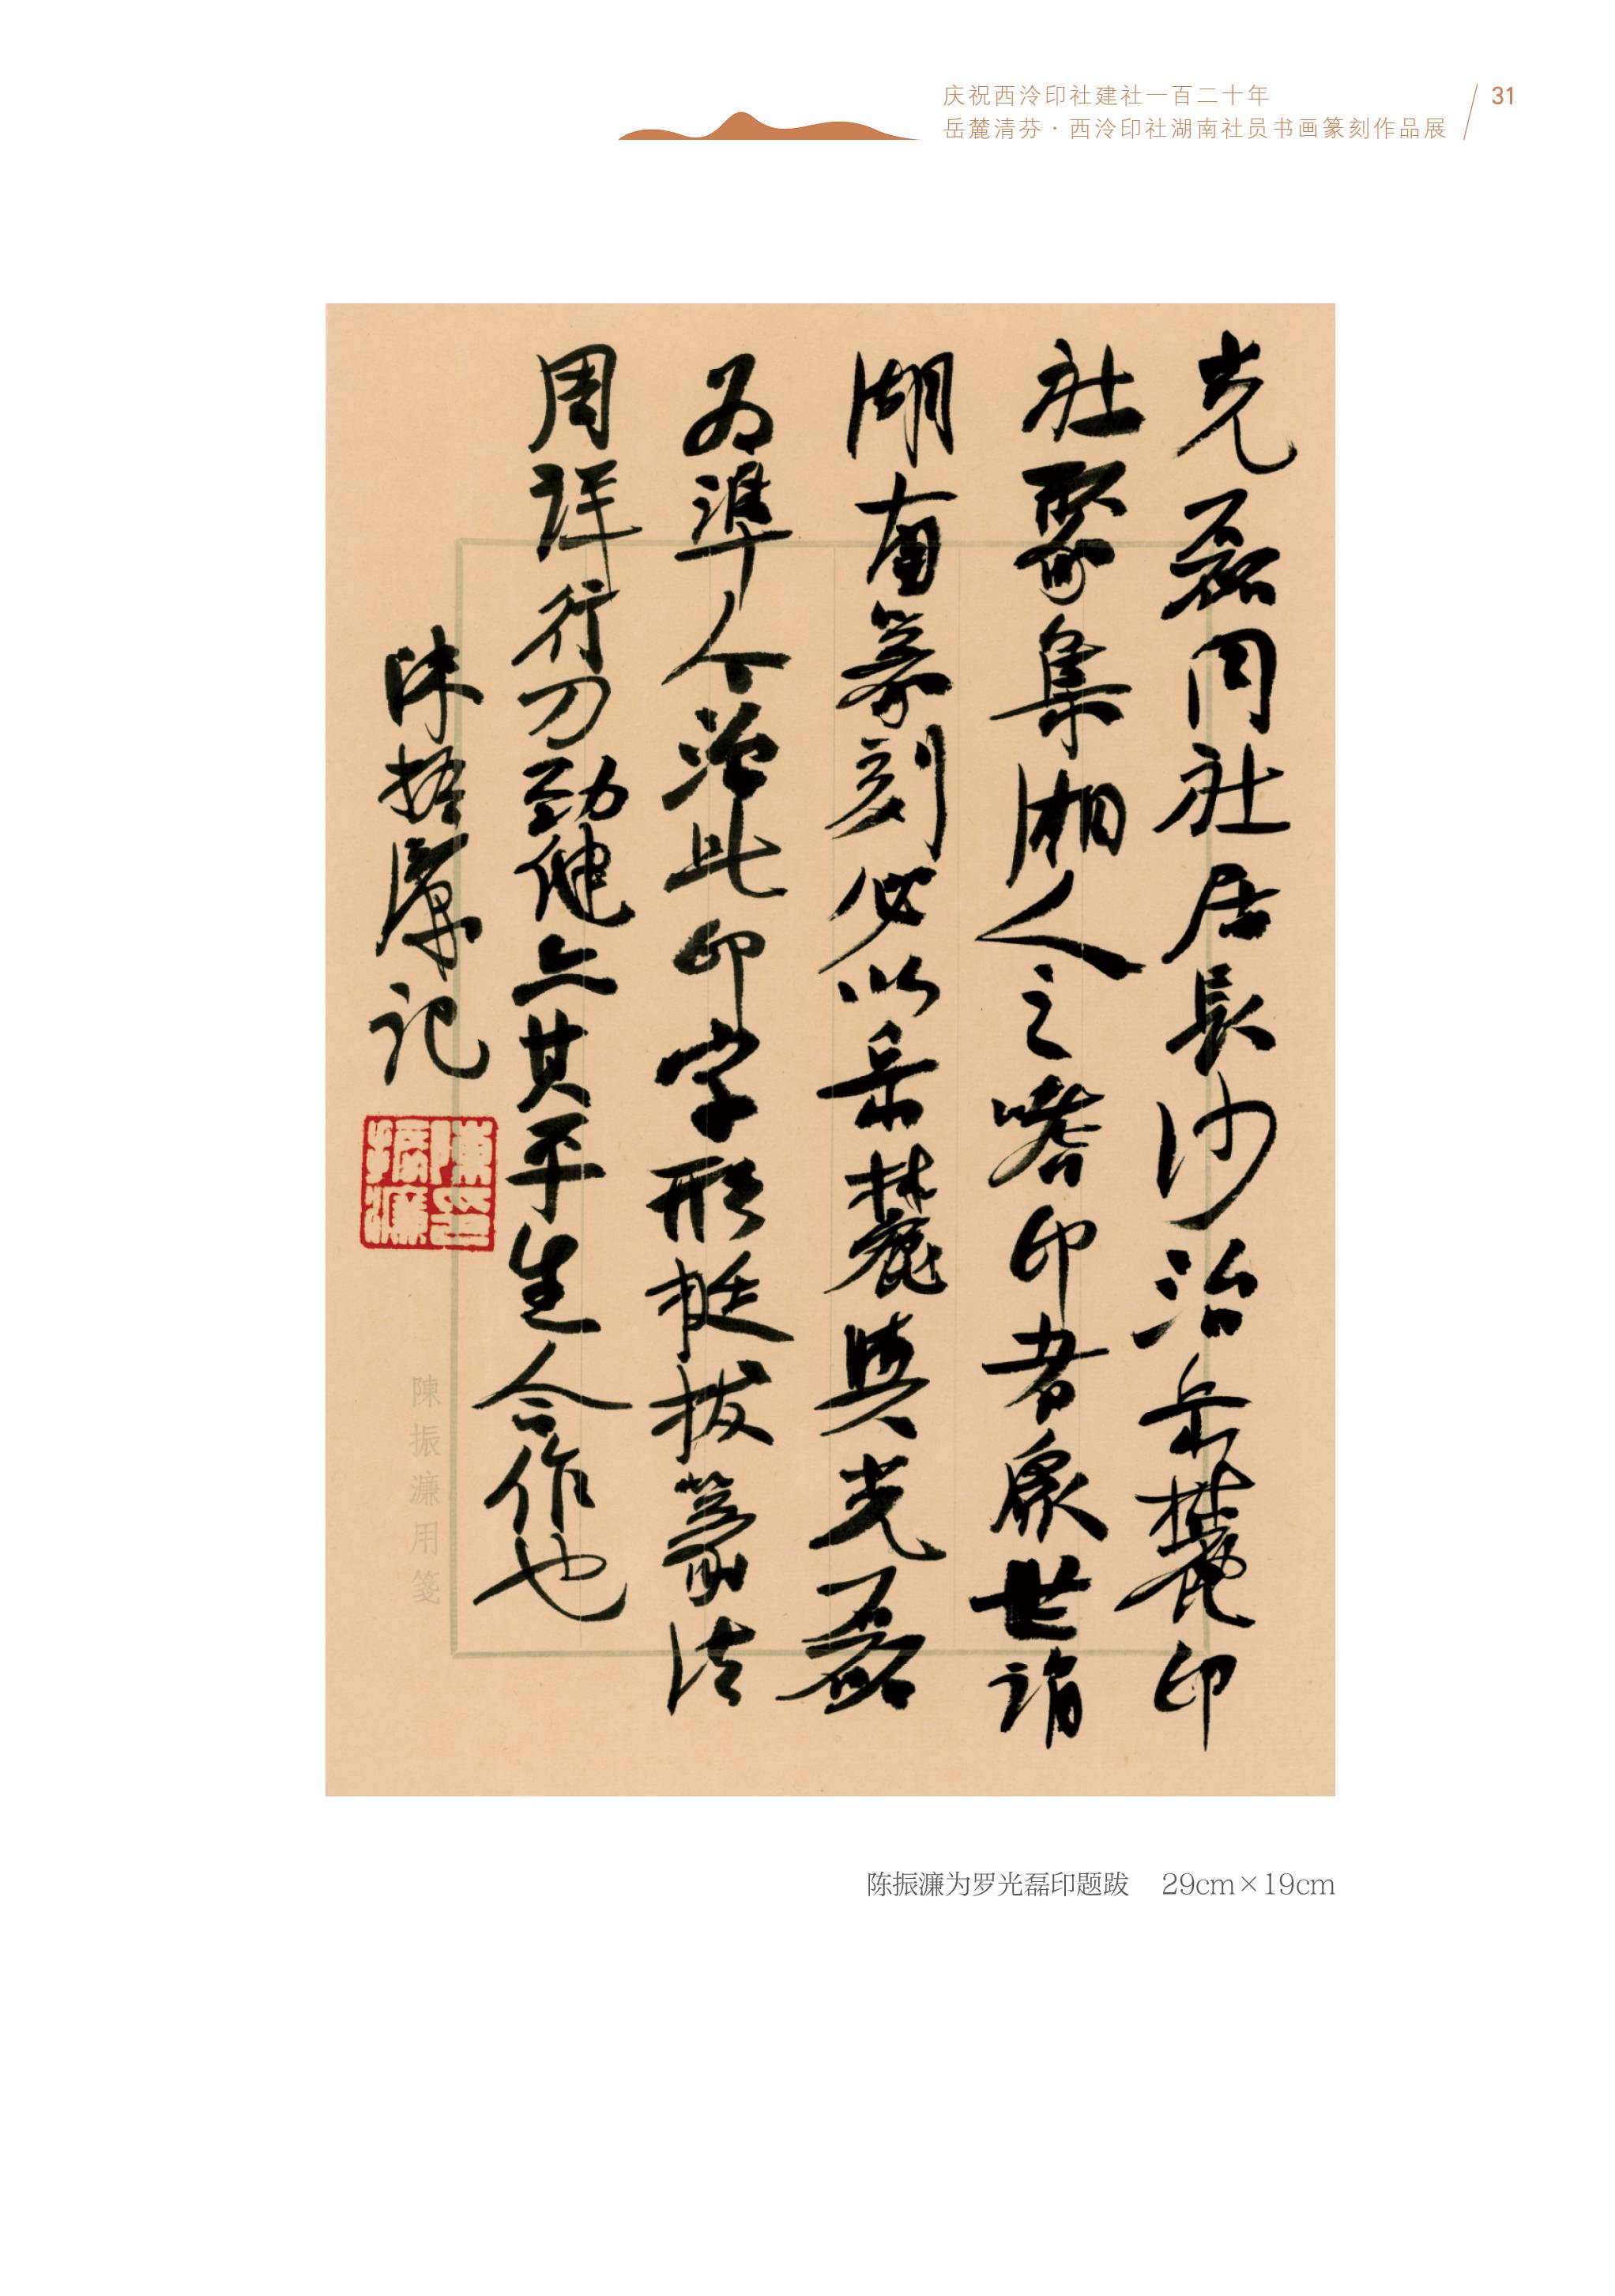 庆祝西泠印社建社一百二十年
岳麓清芬·西泠印社湖南社员书画篆刻作品展
31
光磊同社居長沙治岳麓印
社聚集湘人之嗜印者众世谓
湖南篆刻必以岳麓與光磊
为準人今治此印字形挺拔篆法
周详行刀劲健亦其平生合作也
陈振濂记
陳振濂印
陳振濂用箋
陈振濂为罗光磊印题跋 29cm×19cm